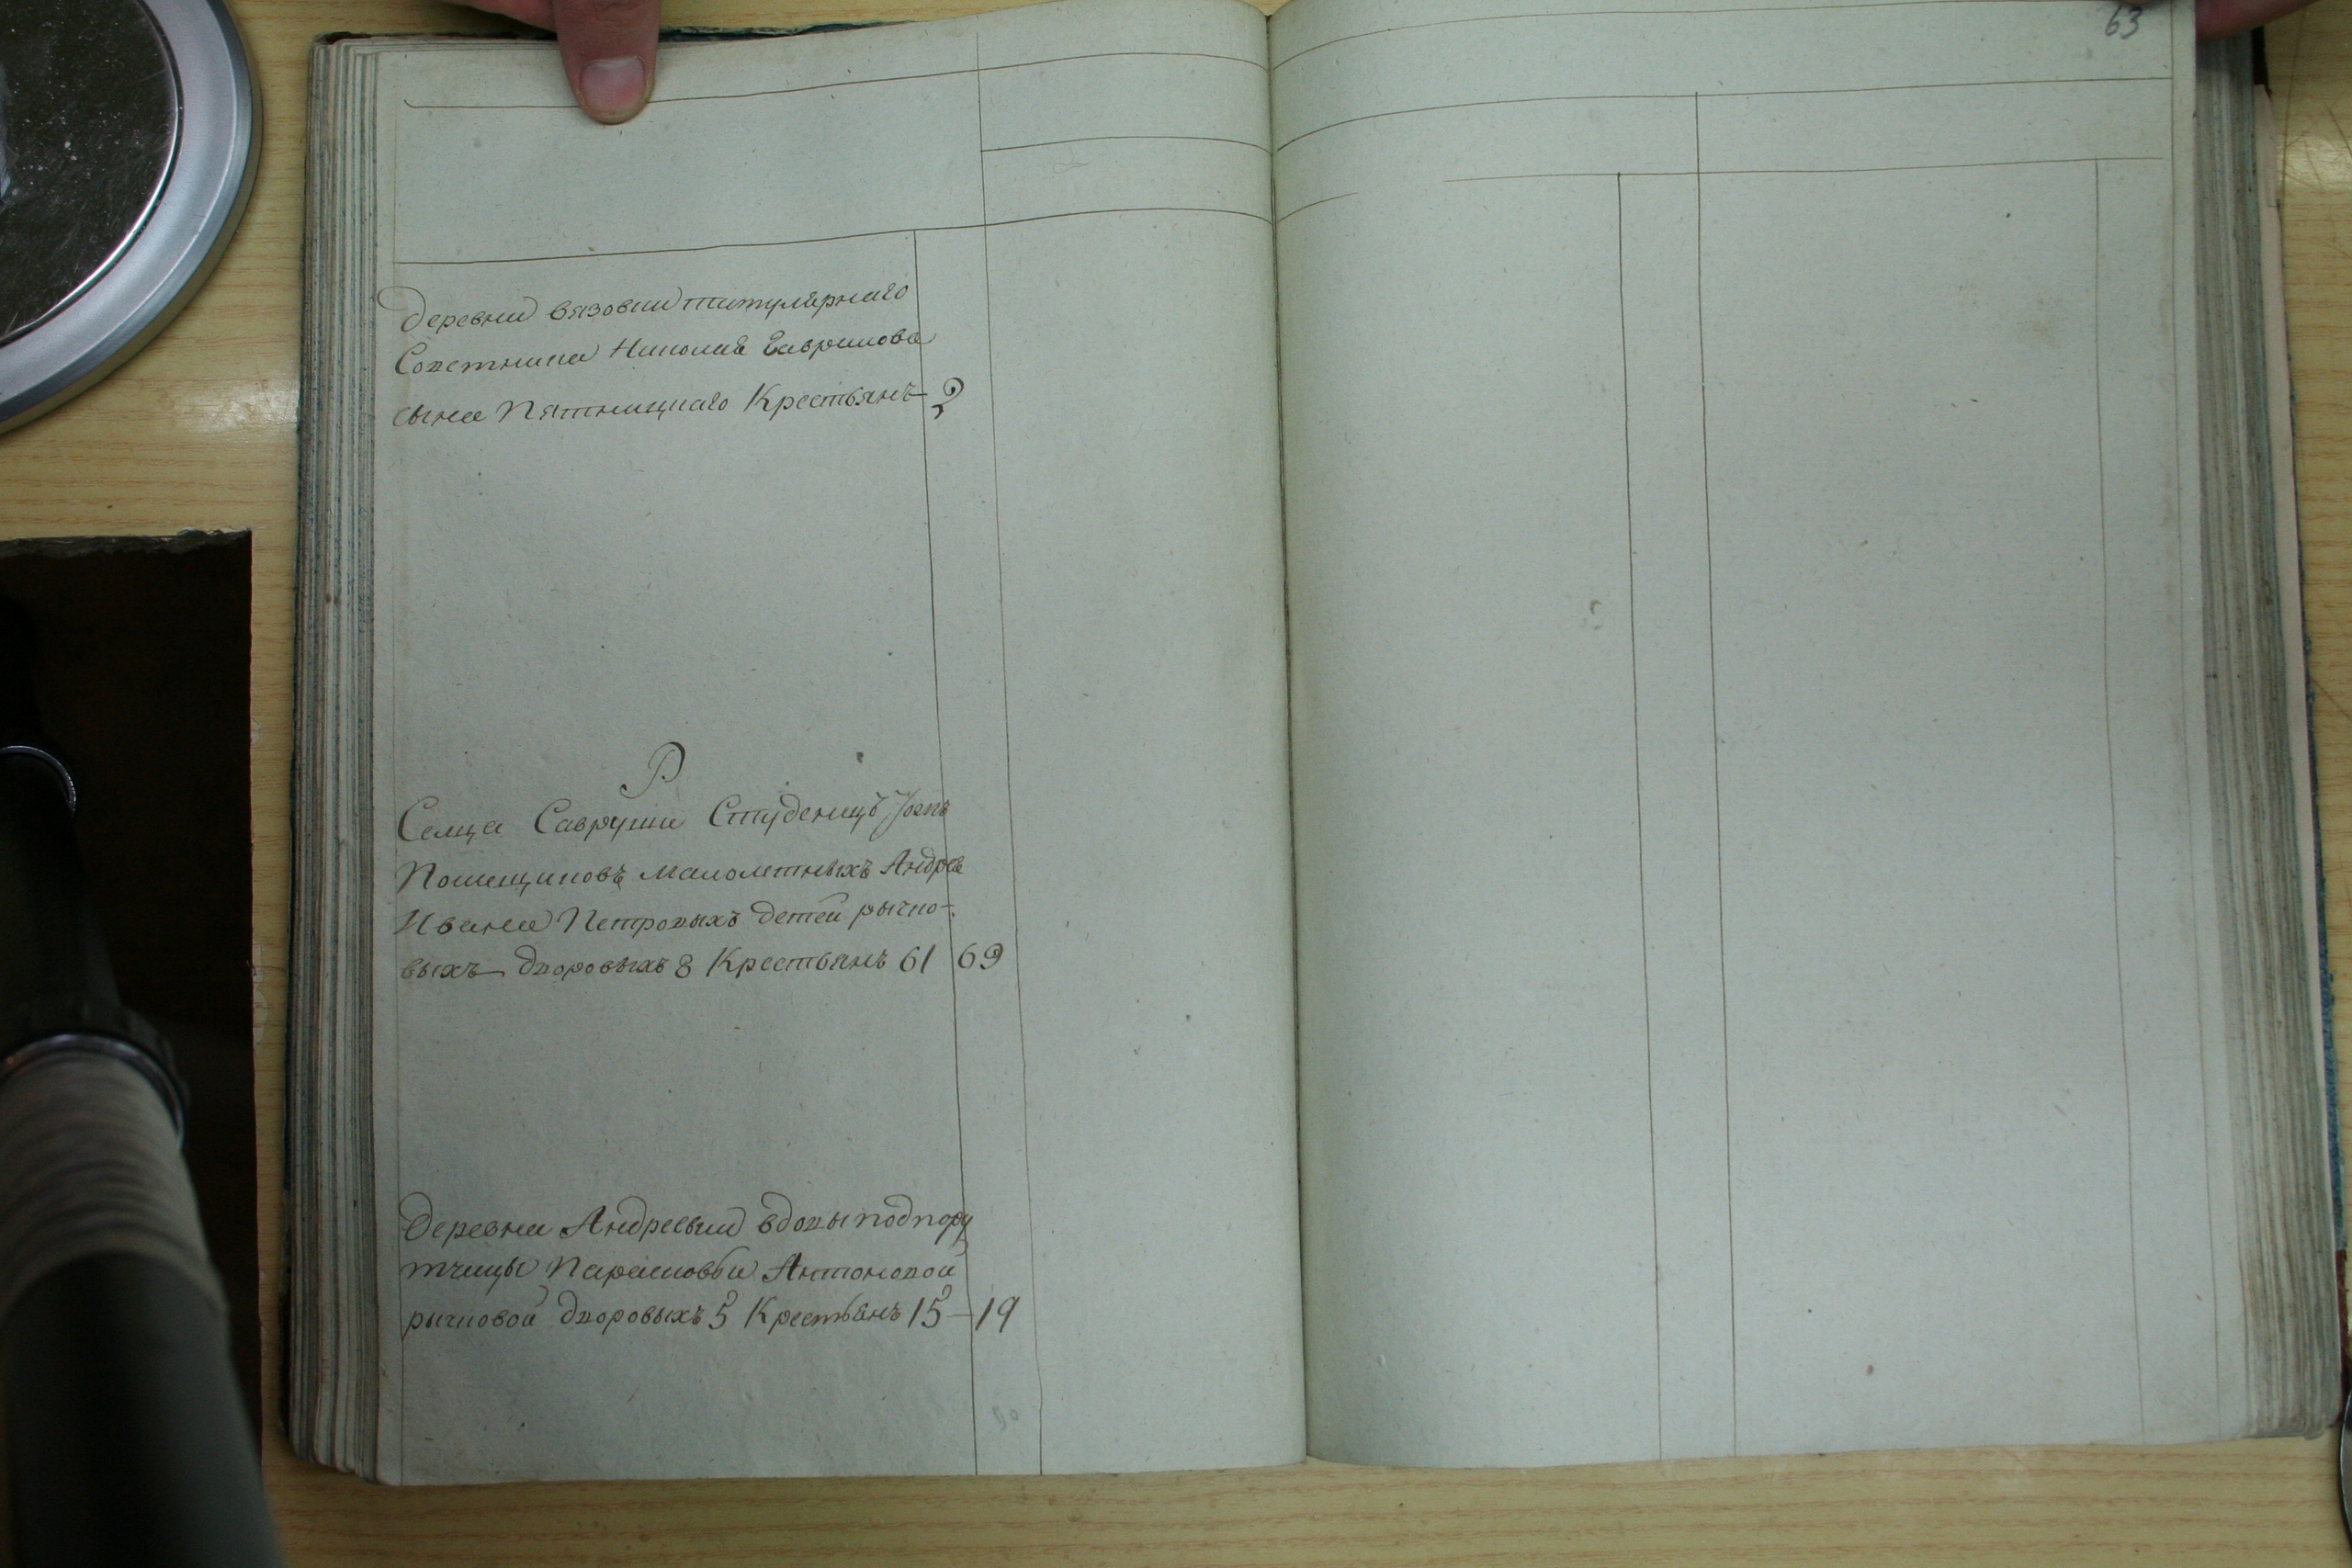 63
Деревни Вязовки титулярнаго
Советника Николая Гаврилова
сына Пятницкаго Крестьянъ 2
Р
Селца Савруши Студенецъ тожъ
Помещиковъ малолетныхъ Андрея
Ивана Петровыхъ детей рычко-
выхъ дворовыхъ 8 Крестьянъ 61 69
Деревни Андреевки вдовы подпору
тчицы Парасковьи Антоновой
рычковой дворовыхъ 5 Крестьянъ 15 — 19